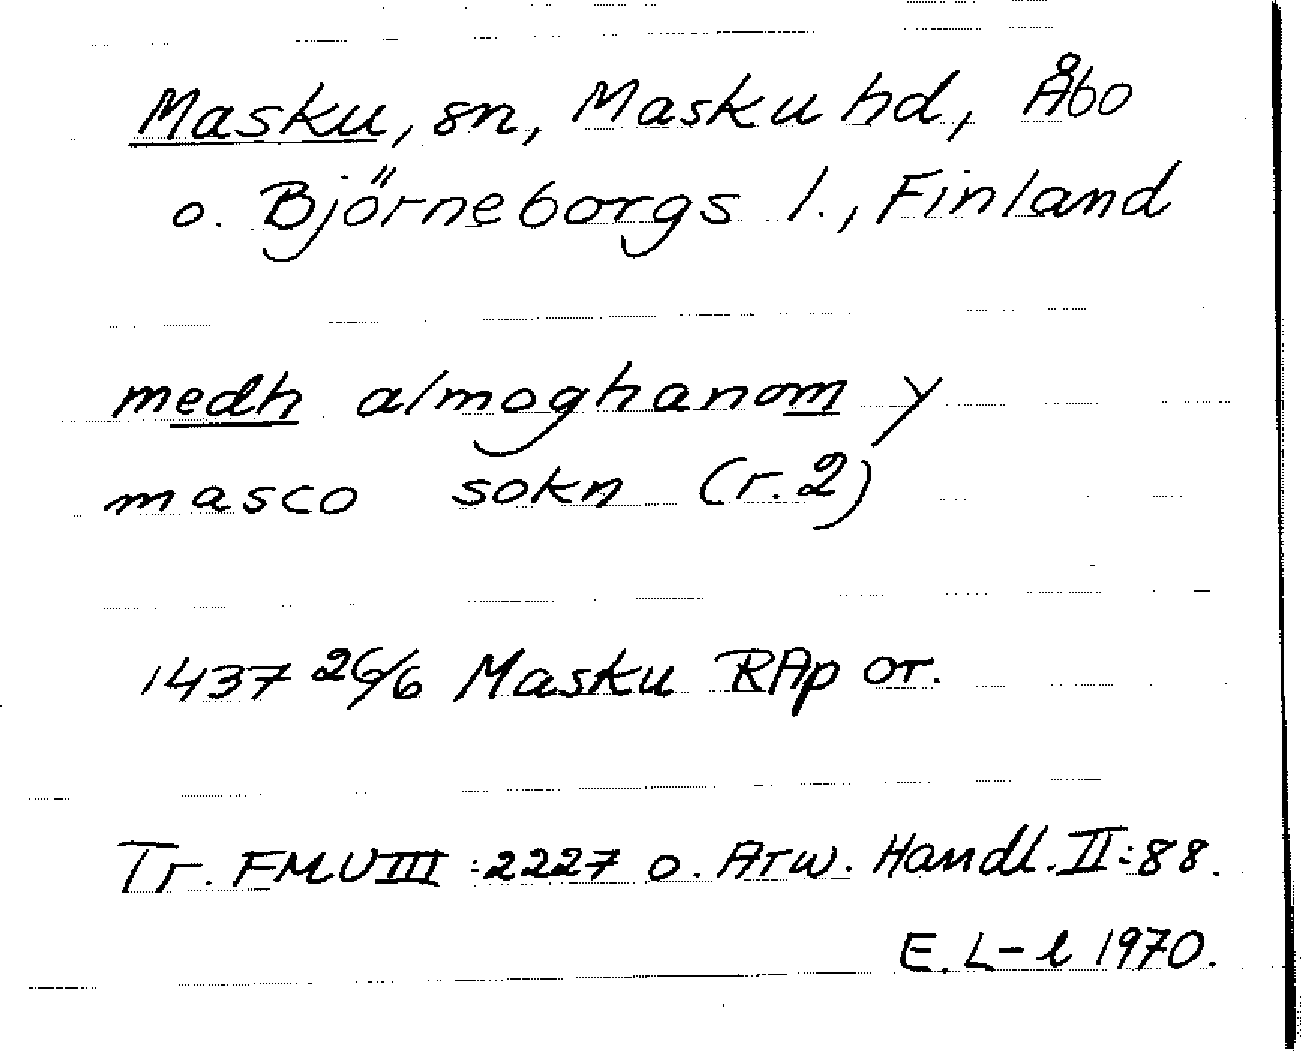 Masku, sn, Masku hd, Åbo
o. Björneborgs l., Finland
medh almoghanom y
masco sokn (r. 2)
1437 26/6 Masku RAp or.
Tr. FMU III :2227 o. Arw. Handl. II:88.
E. L-l 1970.